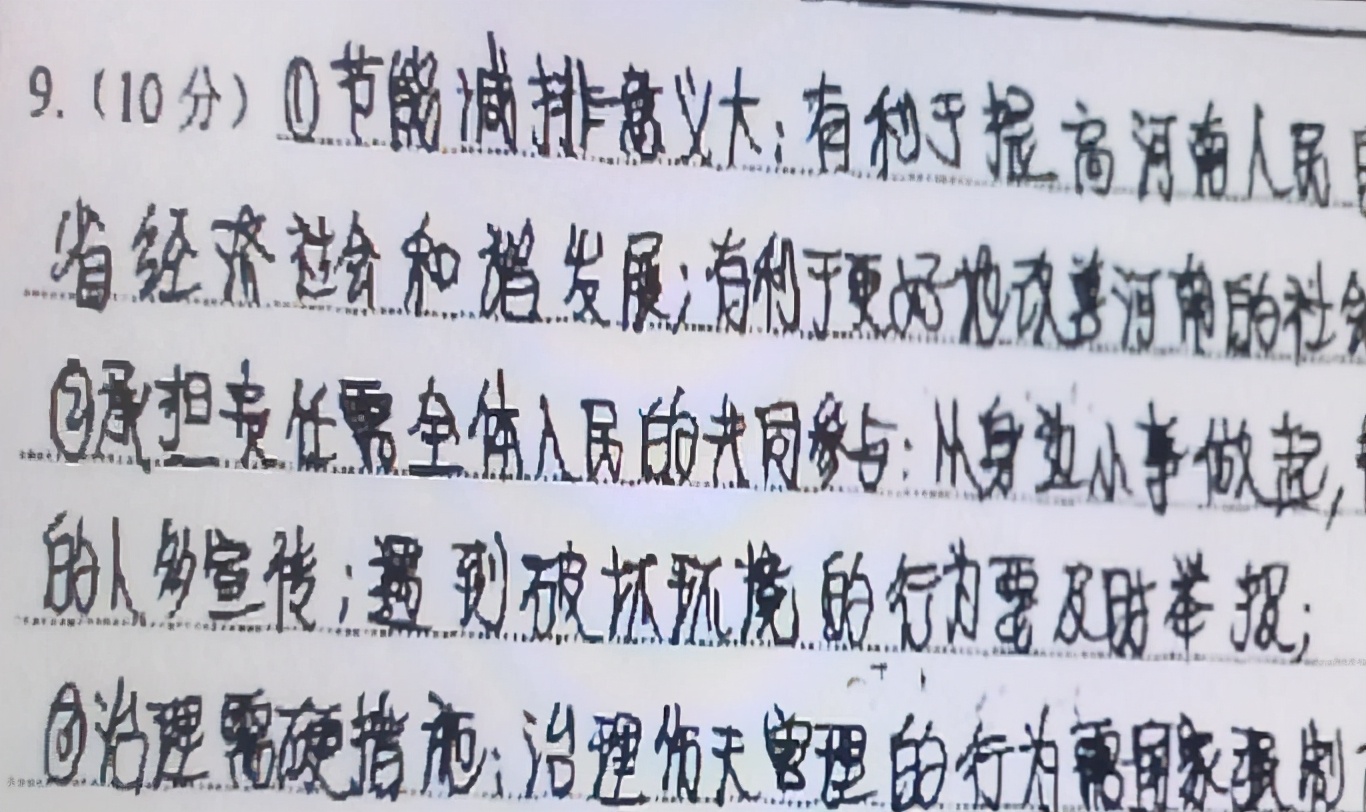 9.(10分)①节能减排意义大;有利于提高河南人民
省经济社会和谐发展;有利于更好地改善河南的社会
②承担责任需全体人民的共同参与:从身边小事做起,
的人多宣传;遇到破坏环境的行为要及时举报;
③治理需硬措施:治理伤天害理的行为需国家强制